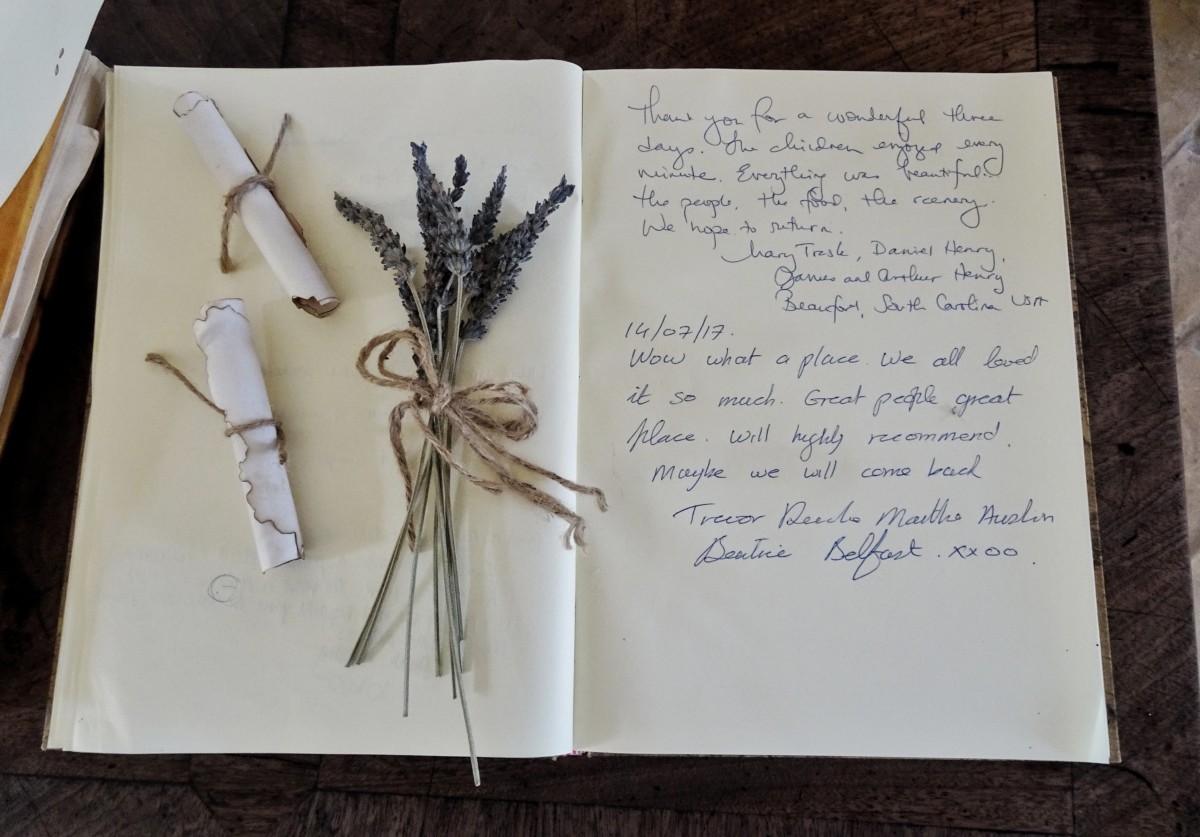 Thank you for a wonderful three
days. The children enjoyed every
minute. Everything was beautiful:
the people, the food, the scenery.
We hope to return.
Mary Trask, Daniel Henry,
James and Arthur Henry
Beaufort, South Carolina USA
14/07/17.
Wow what a place. We all loved
it so much. Great people great
place. Will highly recommend.
Maybe we will come back
Trevor Martha Austin
Beatrice Belfast. xxoo.